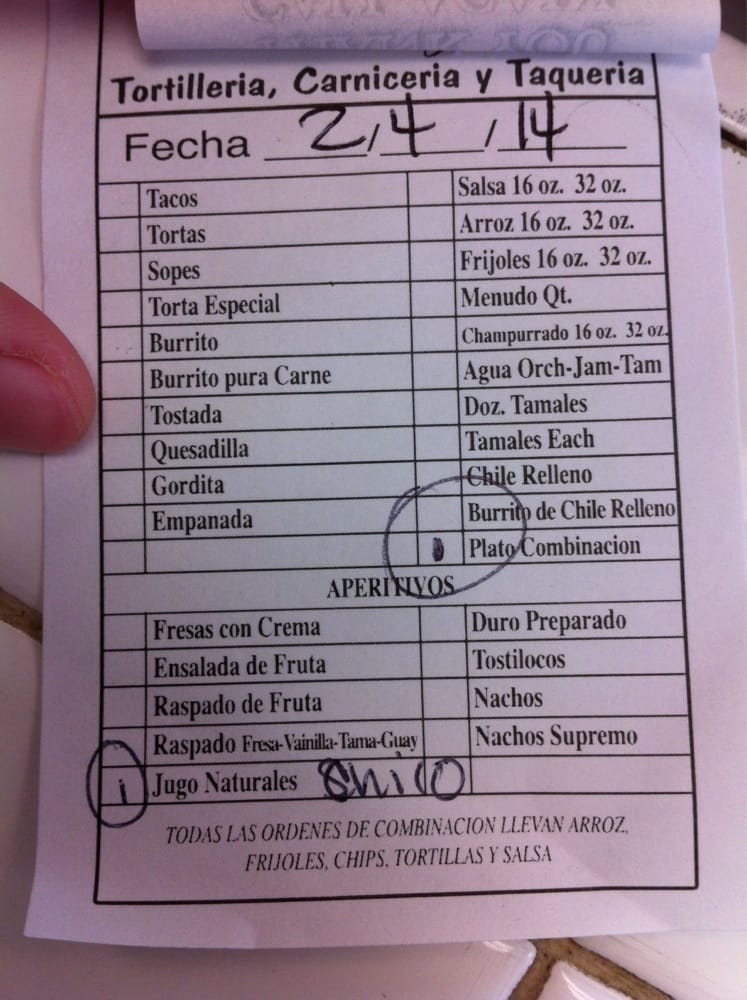 Tortilleria, Carniceria y Taqueria
Fecha 2/4/14
Tacos Salsa 16 oz. 32 oz.
Tortas Arroz 16 oz. 32 oz.
Sopes Frijoles 16 oz. 32 oz.
Torta Especial Menudo Qt.
Burrito Champurrado 16 oz. 32 oz.
Burrito pura Carne Agua Orch-Jam-Tam
Tostada Doz. Tamales
Quesadilla Tamales Each
Gordita Chile Relleno
Empanada Burrito de Chile Relleno
1 Plato Combinacion
APERITIVOS
Fresas con Crema Duro Preparado
Ensalada de Fruta Tostilocos
Raspado de Fruta Nachos
Raspado Fresa-Vainilla-Tama-Guay Nachos Supremo
1 Jugo Naturales
TODAS LAS ORDENES DE COMBINACION LLEVAN ARROZ,
FRIJOLES, CHIPS, TORTILLAS Y SALSA